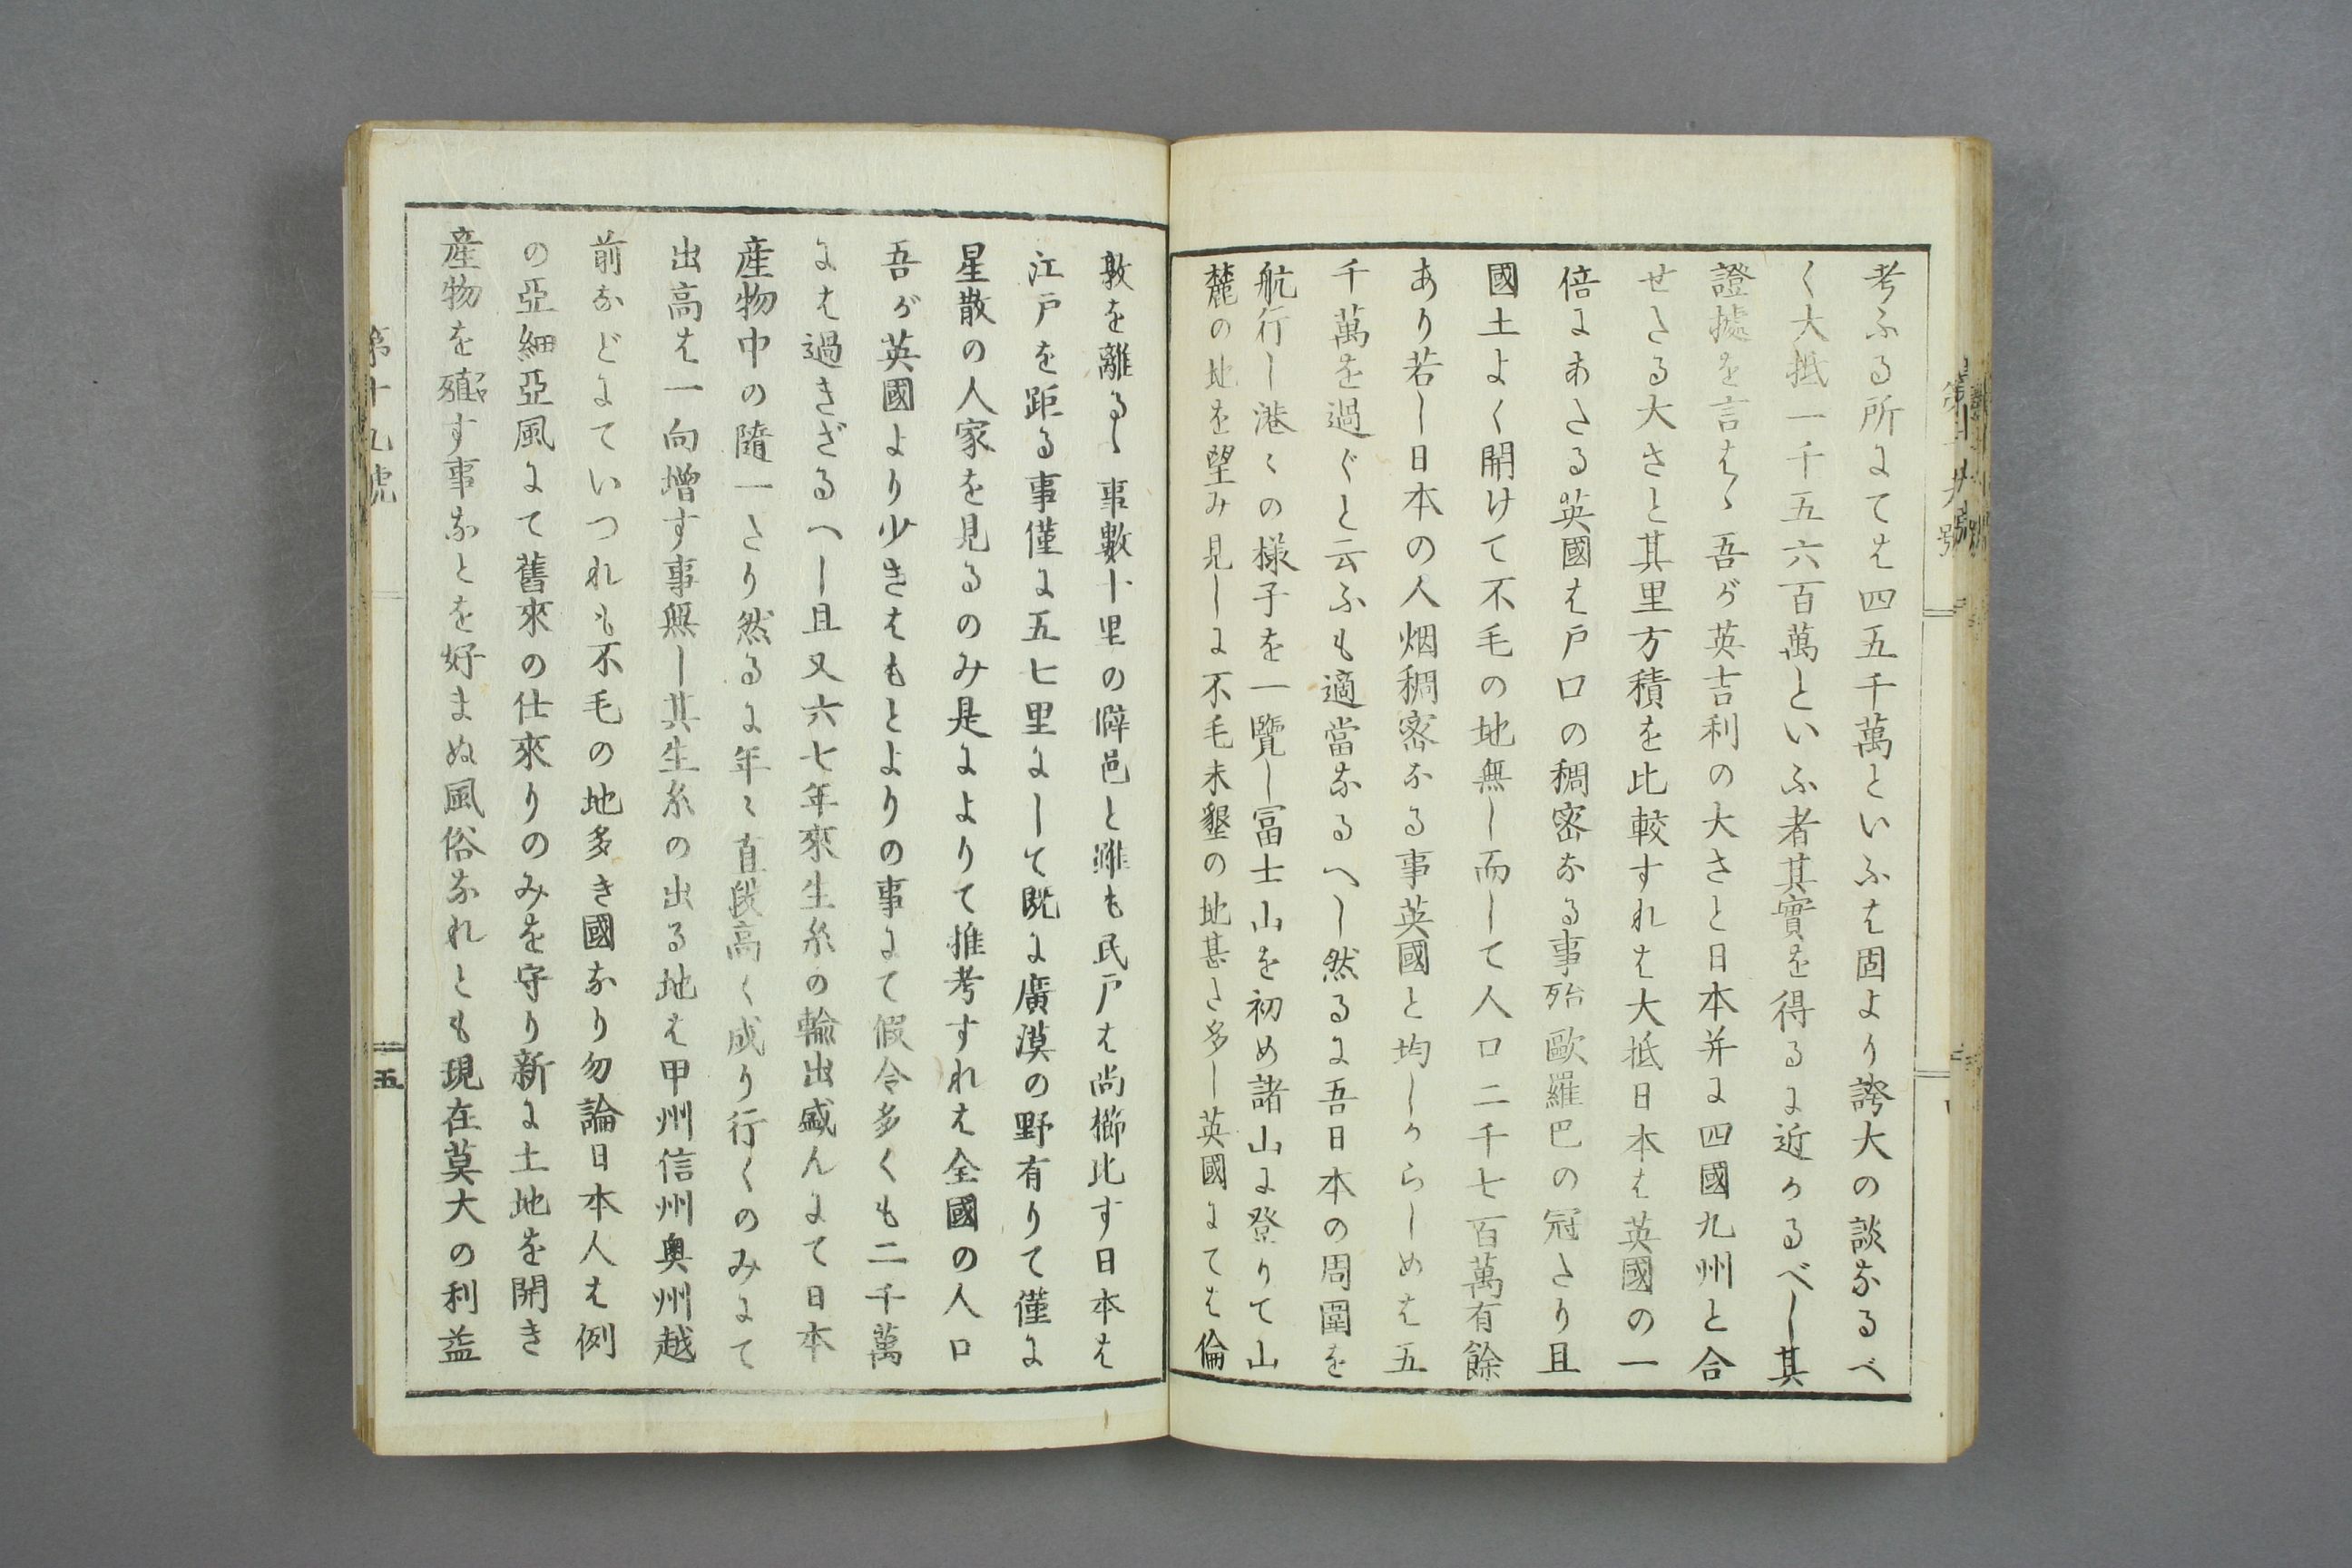 考ふる所にては四五千萬といふは固より誇大の談なるべ
く大抵一千五六百萬といふ者其實を得るに近かるべし其
證據を言はゝ吾が英吉利の大さと日本并に四國九州と合
せたる大さと其里方積を比較すれは大抵日本は英國の一
倍にあたる英國は戸口の稠密なる事殆歐羅巴の冠たり且
國土よく開けて不毛の地無し而して人口二千七百萬有餘
あり若し日本の人烟稠密なる事英國と均しからしめは五
千萬を過ぐと云ふも適當なるへし然るに吾日本の周圍を
航行し港々の様子を一覽し冨士山を初め諸山に登りて山
麓の地を望み見しに不毛未墾の地甚た多し英國にては倫
敦を離るゝ事數十里の僻邑と雖も民戸は尚櫛比す日本は
江戸を距る事僅に五七里にして既に廣漠の野有りて僅に
星散の人家を見るのみ是によりて推考すれは全國の人口
吾が英國より少きはもとよりの事にて假令多くも二千萬
には過きざるへし且又六七年來生糸の輸出盛んにて日本
産物中の随一たり然るに年々直段高く成り行くのみにて
出高は一向増す事無し其生糸の出る地は甲州信州奥州越
前などにていつれも不毛の地多き國なり勿論日本人は例
の亞細亞風にて舊來の仕來りのみを守り新に土地を開き
産物を殖す事なとを好まぬ風俗なれとも現在莫大の利益
第十九號
五